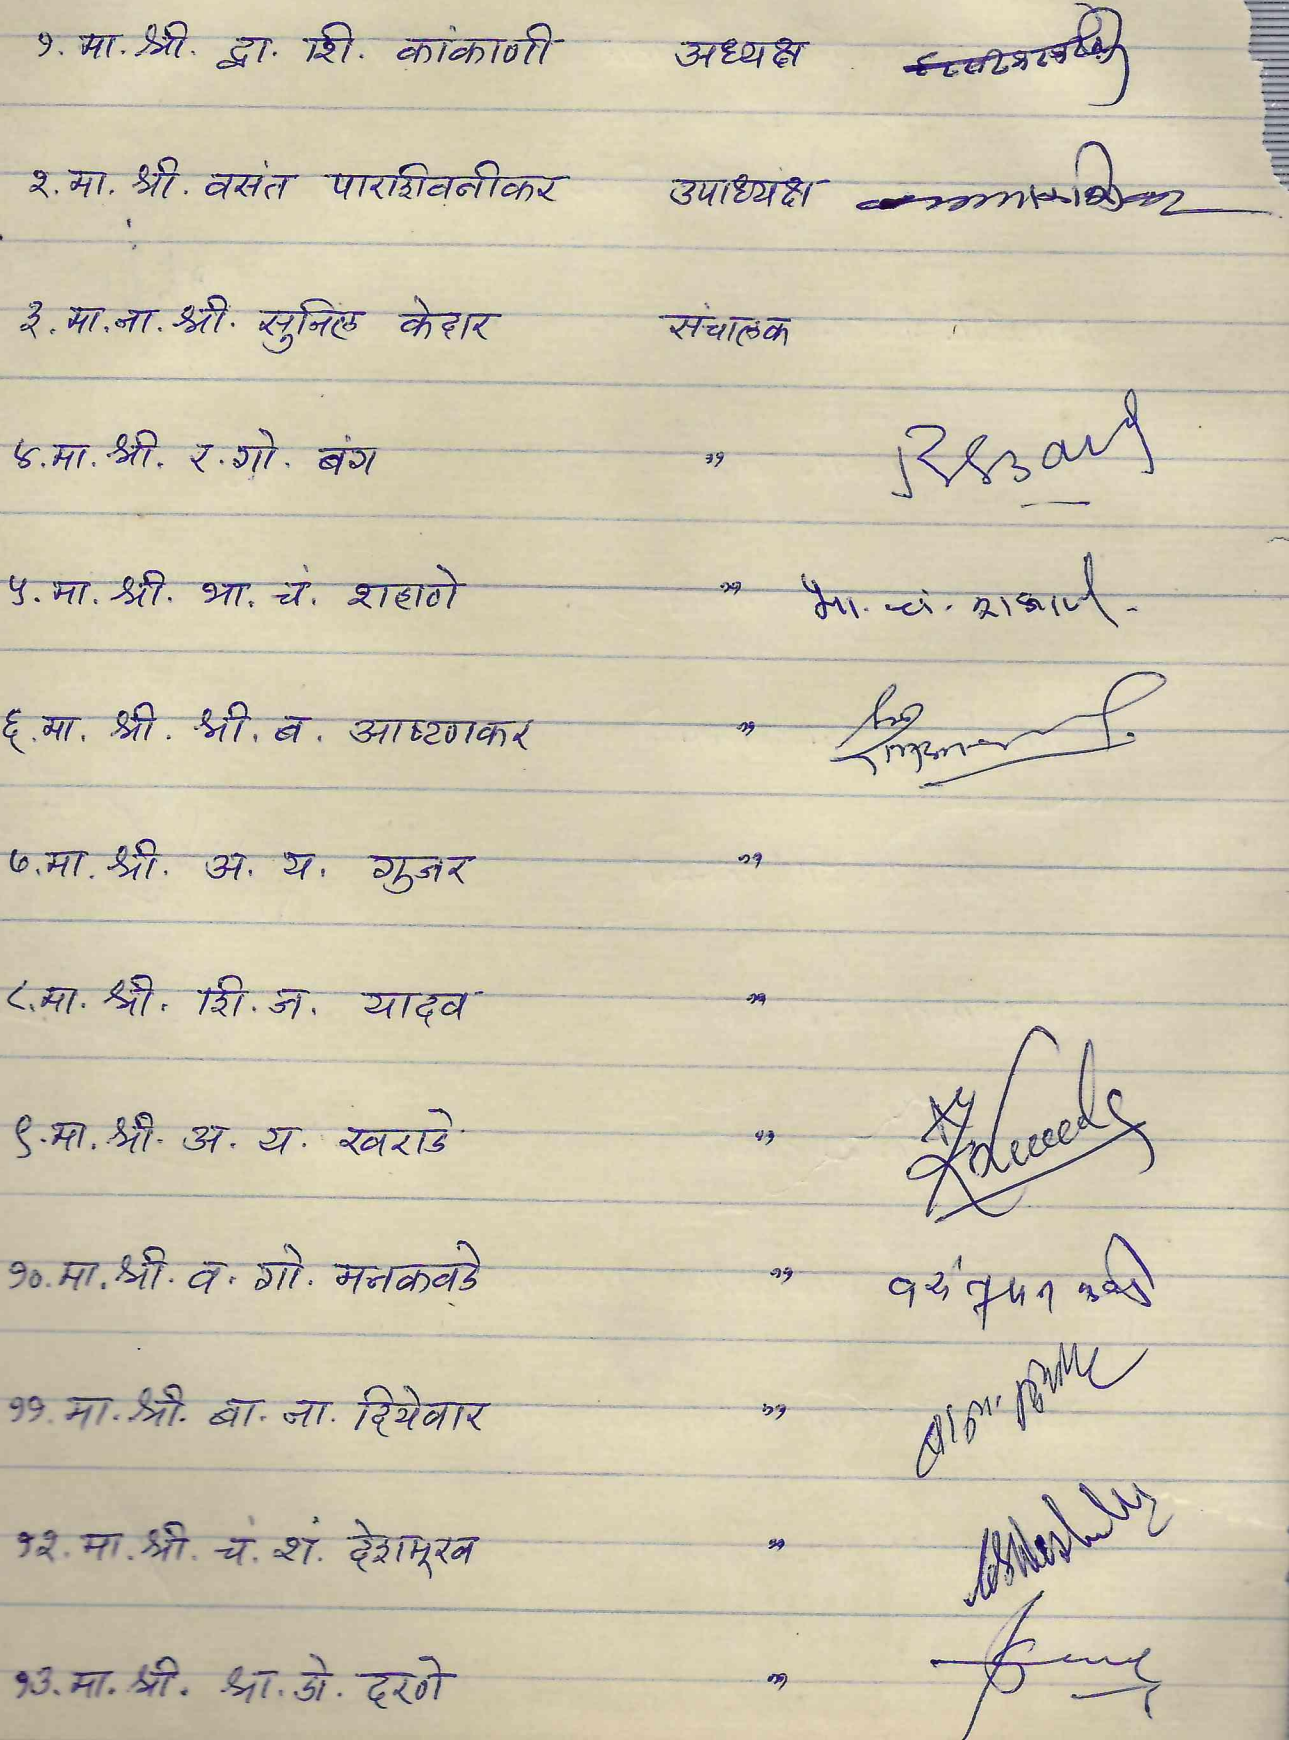 १. मा. श्री. द्वा. शि. कांकाणी अध्यक्ष
२. मा. श्री. वसंत पारशिवनीकर उपाध्यक्ष
३. मा. ना. श्री. सुनिल केदार संचालक
४. मा. श्री. र. गो. बंग "
५. मा. श्री. भा. चं. शहाणे " भा. चं. शहाणे.
६. मा. श्री. श्री. ब. आष्टणकर "
७. मा. श्री. अ. य. गुजर "
८. मा. श्री. शि. ज. यादव "
९. मा. श्री. अ. य. खराडे "
१०. मा. श्री. व. गो. मनकवडे "
११. मा. श्री. बा. ना. दियेवार "
१२. मा. श्री. चं. शं. देशमूख "
१३. मा. श्री. श्रा. डो. दरणे "